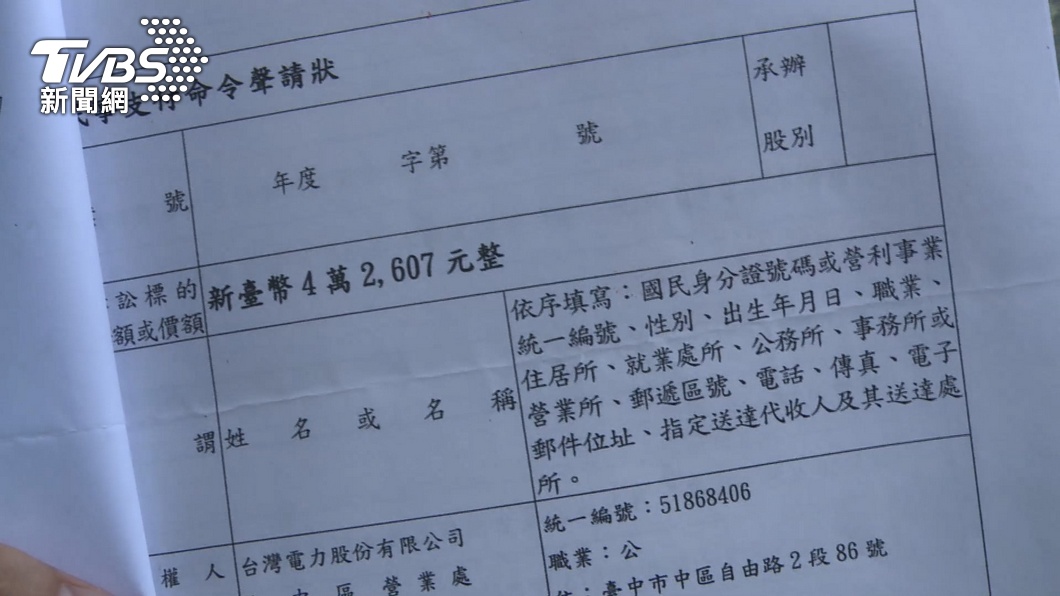 TVBS
新聞網
命令聲請狀
號
年度 字第 號
承辦
股別
訟標的
額或價額
新臺幣4萬2,607元整
謂
姓名或名稱
依序填寫：國民身分證號碼或營利事業
統一編號、性別、出生年月日、職業、
住居所、就業處所、公務所、事務所或
營業所、郵遞區號、電話、傳真、電子
郵件位址、指定送達代收人及其送達處
所。
權人
台灣電力股份有限公司
區營業處
統一編號：51868406
職業：公
臺中市中區自由路2段86號